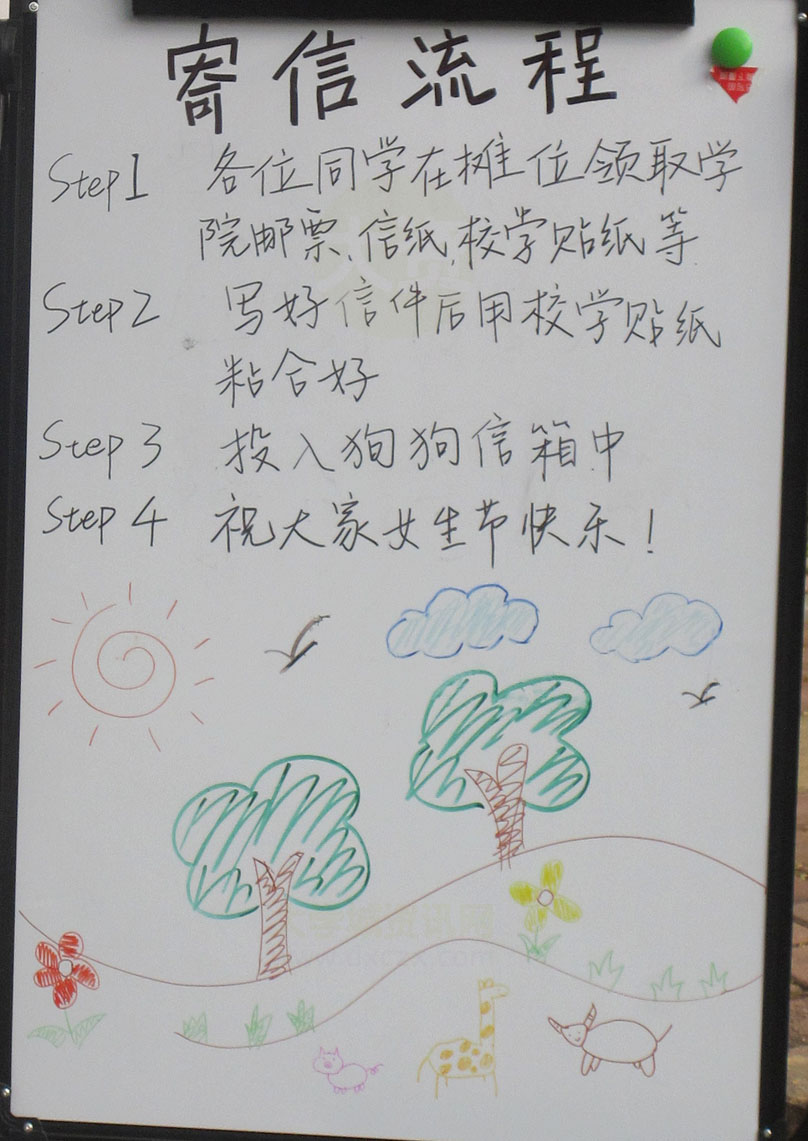 寄信流程
Step1 各位同学在摊位领取学
院邮票、信纸、校学贴纸等
Step2 写好信件后用校学贴纸
粘合好
Step 3 投入狗狗信箱中
Step 4 祝大家女生节快乐！